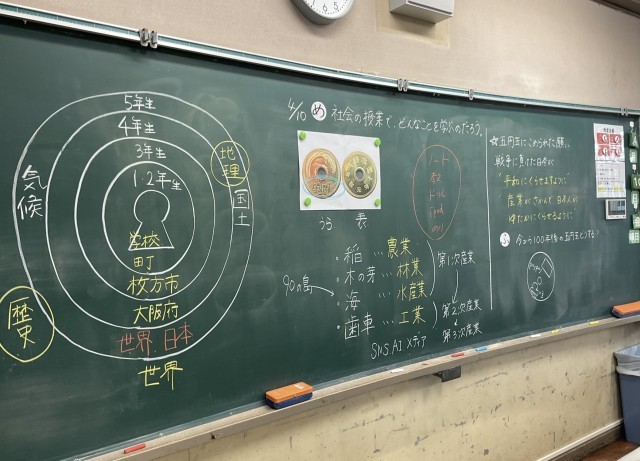 5年生
4年生
3年生
1・2年生
学校
町
枚方市
大阪府
世界、日本
世界
気候
歴史
地理
国土
4/10 め 社会の授業で、どんなことを学ぶのだろう。
うら 表
・稲 … 農業
・木の芽 … 林業
・海 … 水産業
・歯車 … 工業
第1次産業
第2次産業
第3次産業
SNS.AI メディア
ノート
☆五円玉にこめられた願い
戦争に負けた日本が
"平和にくらせますように"
産業がさかんで日本人が
ゆたかにくらせるように
今から100年後の五円玉どうする?